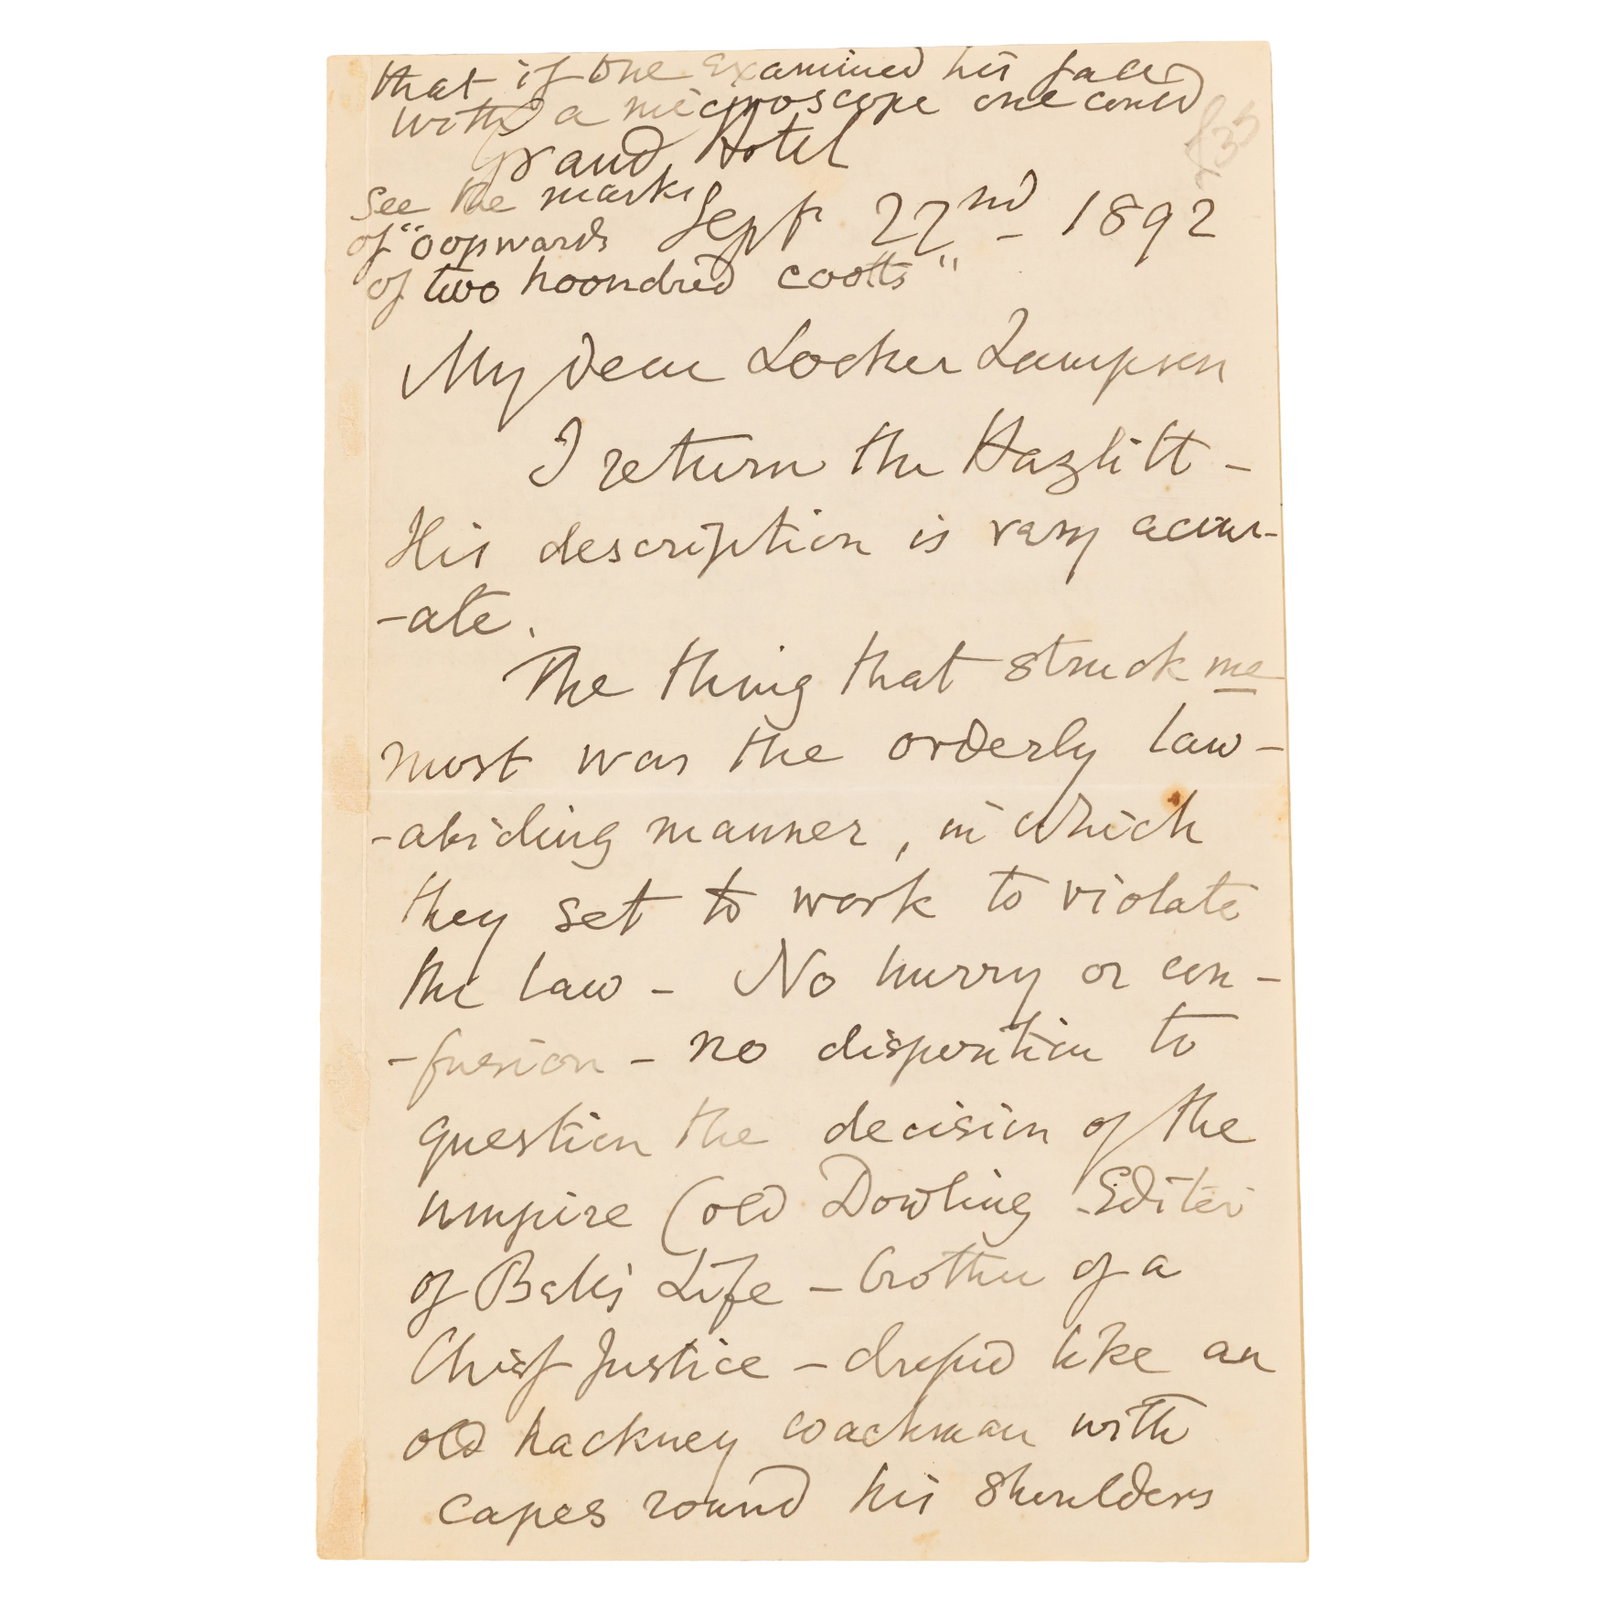 that if one examined his face
with a microscope one could
Grand Hotel
see the marks
Sept 22nd - 1892
of "oopwards
of two hoondred cootts"
My dear Locker Lampson
I return the Hazlitt -
His description is very accur-
-ate.
The thing that struck me
most was the orderly law-
-abiding manner, in which
they set to work to violate
the law - No hurry or con-
-fusion - no disposition to
question the decision of the
umpire (old Dowling Editor
of Bell's Life - brother of a
Chief Justice - drefsed like an
old hackney coachman with
capes round his shoulders